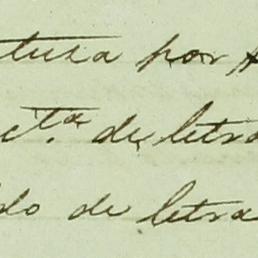 tura por
cta. de letra
do de letra